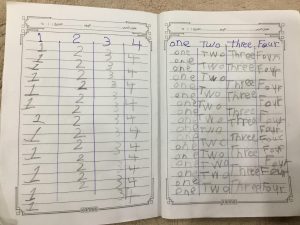 1 2 3 4
1 2 3 4
1 2 3 4
1 2 3 4
1 2 3 4
1 2 3 4
1 2 3 4
1 2 3 4
1 2 3 4
1 2 3 4
1 2 3 4
1 2 3 4
1
one Two three Four
one Two Three Four
one Two Three Four
one Two Three Four
one Two Three Four
one Two Three Four
one Two Three Four
one Two Three Four
one Two Three Four
one Two Three Four
one Two Three Four
one Two Three Four
one Two Three Four